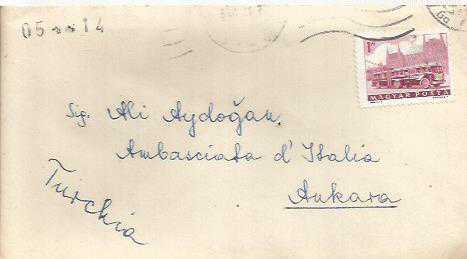 05 14
1Ft
MAGYAR POSTA
Sig. Ali Aydoğan,
Ambasciata d'Italia
Ankara
Turchia